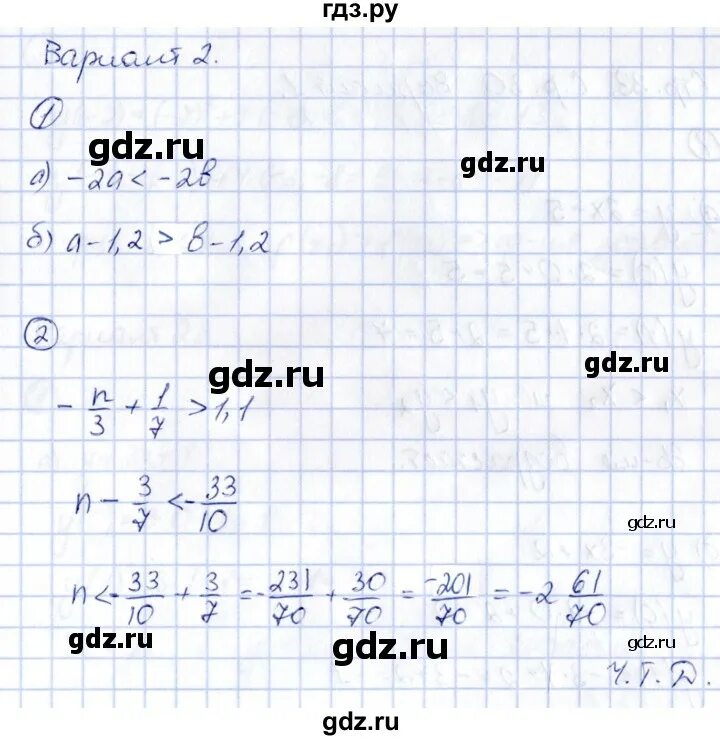 гдз.ру
Вариант 2.
1
gdz.ru
gdz.ru
а) -2a < -2b
б) a-1,2 > b-1,2
2
gdz.ru
gdz.ru
- n/3 + 1/7 > 1,1
n - 3/7 < - 33/10
gdz.ru
n < - 33/10 + 3/7 = - 231/70 + 30/70 = -201/70 = -2 61/70
gdz.ru
gdz.ru
gdz.ru
Ч.Т.Д.
gdz.ru